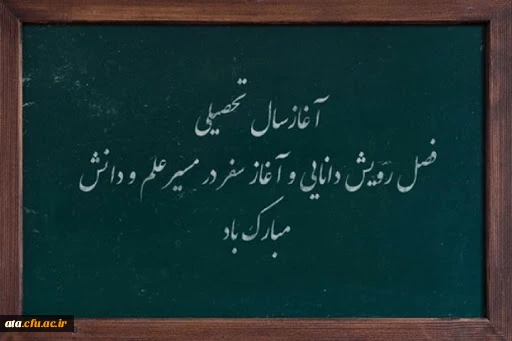 آغاز سال تحصیلی
فصل رویش دانایی و آغاز سفر در مسیر علم و دانش
مبارک باد
ata.cfu.ac.ir